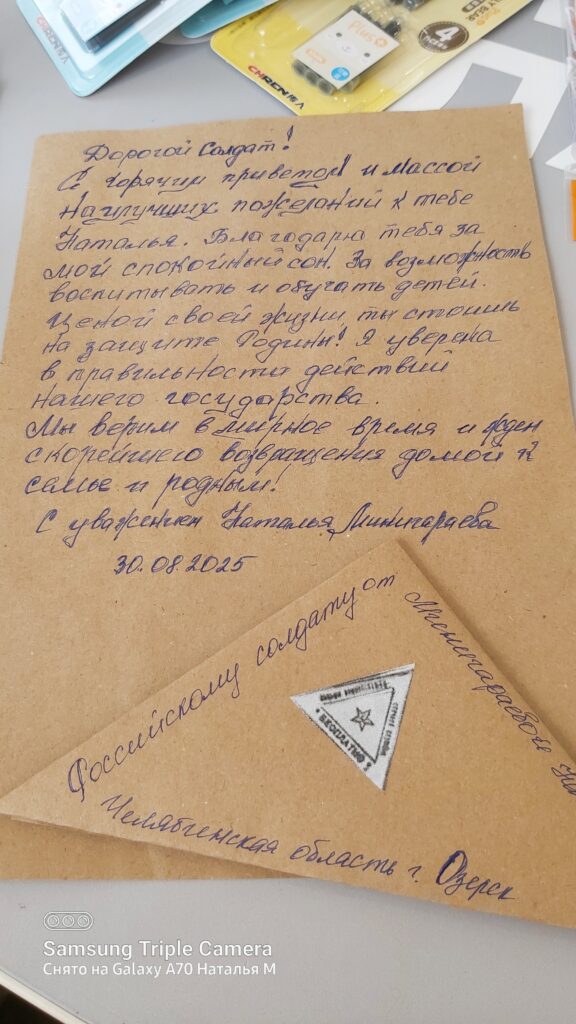 CHREN
Plus+
4
CHREN
Дорогой солдат!
С горячим приветом и массой
наилучших пожеланий к тебе
Наталья. Благодарю тебя за
мой спокойный сон. За возможность
воспитывать и обучать детей.
Ценой своей жизни ты стоишь
на защите Родины! Я уверена
в правильности действий
нашего государства.
Мы верим в мирное время и ждем
скорейшего возвращения домой к
семье и родным!
С уважением Наталья Минигараева
30.08.2025
Российскому солдату от
Минигараевой
БЕСПЛАТНО
Челябинская область г. Озерск
Samsung Triple Camera
Снято на Galaxy A70 Наталья М